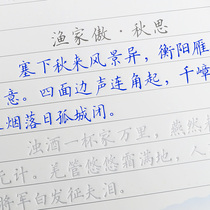 渔家傲·秋思
塞下秋来风景异，衡阳雁
意。四面边声连角起，千嶂
烟落日孤城闭。
浊酒一杯家万里，燕然
无计。羌管悠悠霜满地，人
将军白发征夫泪。